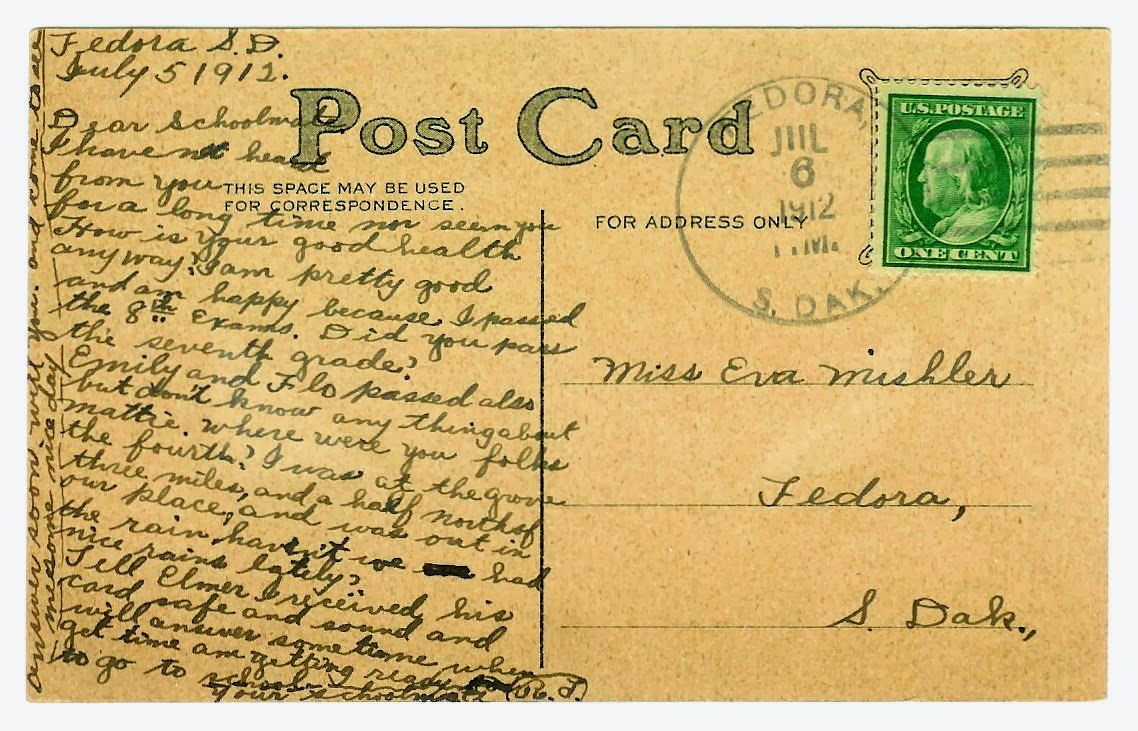 Fedora S.D.
July 5 1912.
Post Card
Dear Schoolmate
I have not heard
from you
THIS SPACE MAY BE USED
FOR CORRESPONDENCE.
for a long time nor seen you
How is your good health
any way? I am pretty good
and am happy because I passed
the 8th Exams. Did you pass
the seventh grade?
Emily and Flo passed also
but don't know any thing about
mattie. Where were you folks
the fourth? I was at the grove
three miles, and a half north of
our place, and was out in
the rain haven't we had
nice rains lately?
Tell Elmer I received his
card safe and sound and
will answer sometime when
get time am getting ready
to go to school.
Your schoolmate (R. T.)
answer soon will you. and come to see
me some nice day
FOR ADDRESS ONLY
FEDORA,
JUL
6
1912
P.M.
S. DAK.
U.S. POSTAGE
ONE CENT
Miss Eva Mishler
Fedora,
S. Dak.,